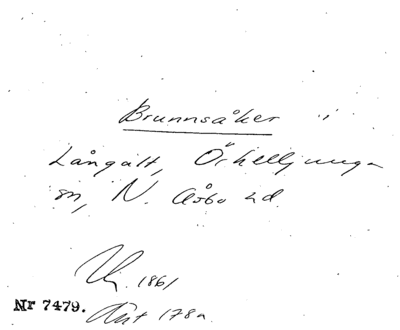 Brunnsåker i
Långalt, Örkelljunga
sn, N. Åsbo hd
1861
Nr 7479. Akt 178a